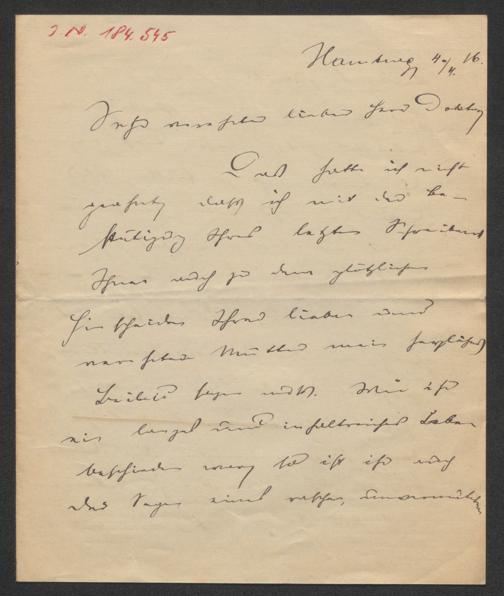 J.N. 184.545
Hamburg 4/4. 16.
Sehr verehrter lieber Herr Doktor
Das hatte ich nicht
geahnt, daß ich mit der Be-
stätigung Ihres letzten Schreibens
Ihnen auch zu dem plötzlichen
Hinscheiden Ihrer lieben und
verehrten Mutter mein herzliches
Beileid sagen müßte. Wie ihr
ein langes und inhaltreiches Leben
beschieden war, so ist ihr auch
der Segen eines raschen, unvermuteten